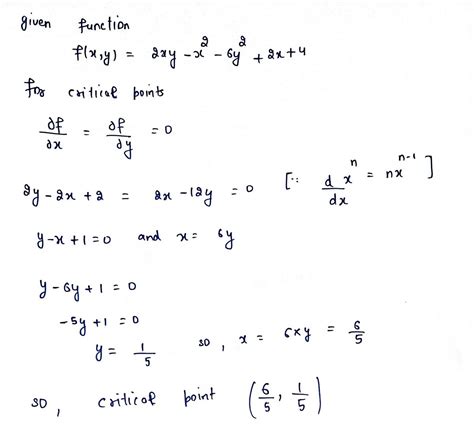 given function
f(x,y) = 2xy - x² - 6y² + 2x + 4
for critical points
∂f/∂x = ∂f/∂y = 0
2y - 2x + 2 = 2x - 12y = 0 [∵ d/dx xⁿ = nxⁿ⁻¹]
y - x + 1 = 0 and x = 6y
y - 6y + 1 = 0
-5y + 1 = 0
y = 1/5 so, x = 6xy = 6/5
so, critical point (6/5, 1/5)